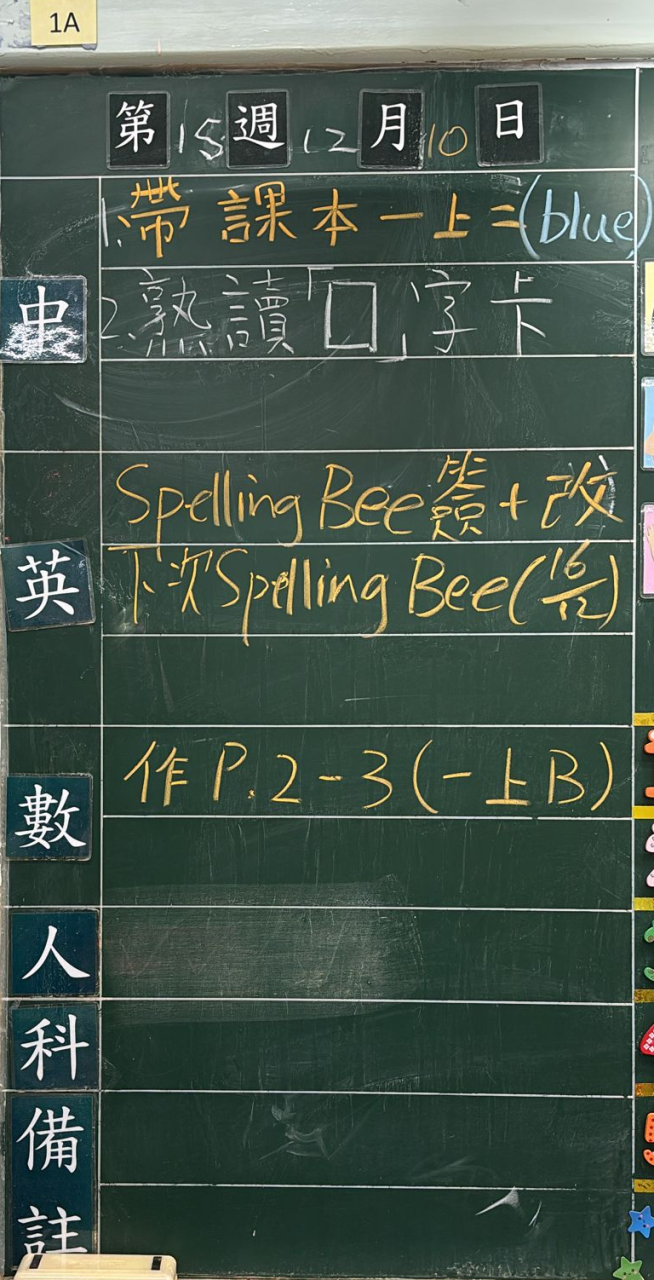 1A
第15週12月10日
中
1.帶課本一上二(blue)
2.熟讀「口」字卡
英
Spelling Bee簽+改
下次Spelling Bee(16/12)
數
作P.2-3(一上B)
人
科
備
註